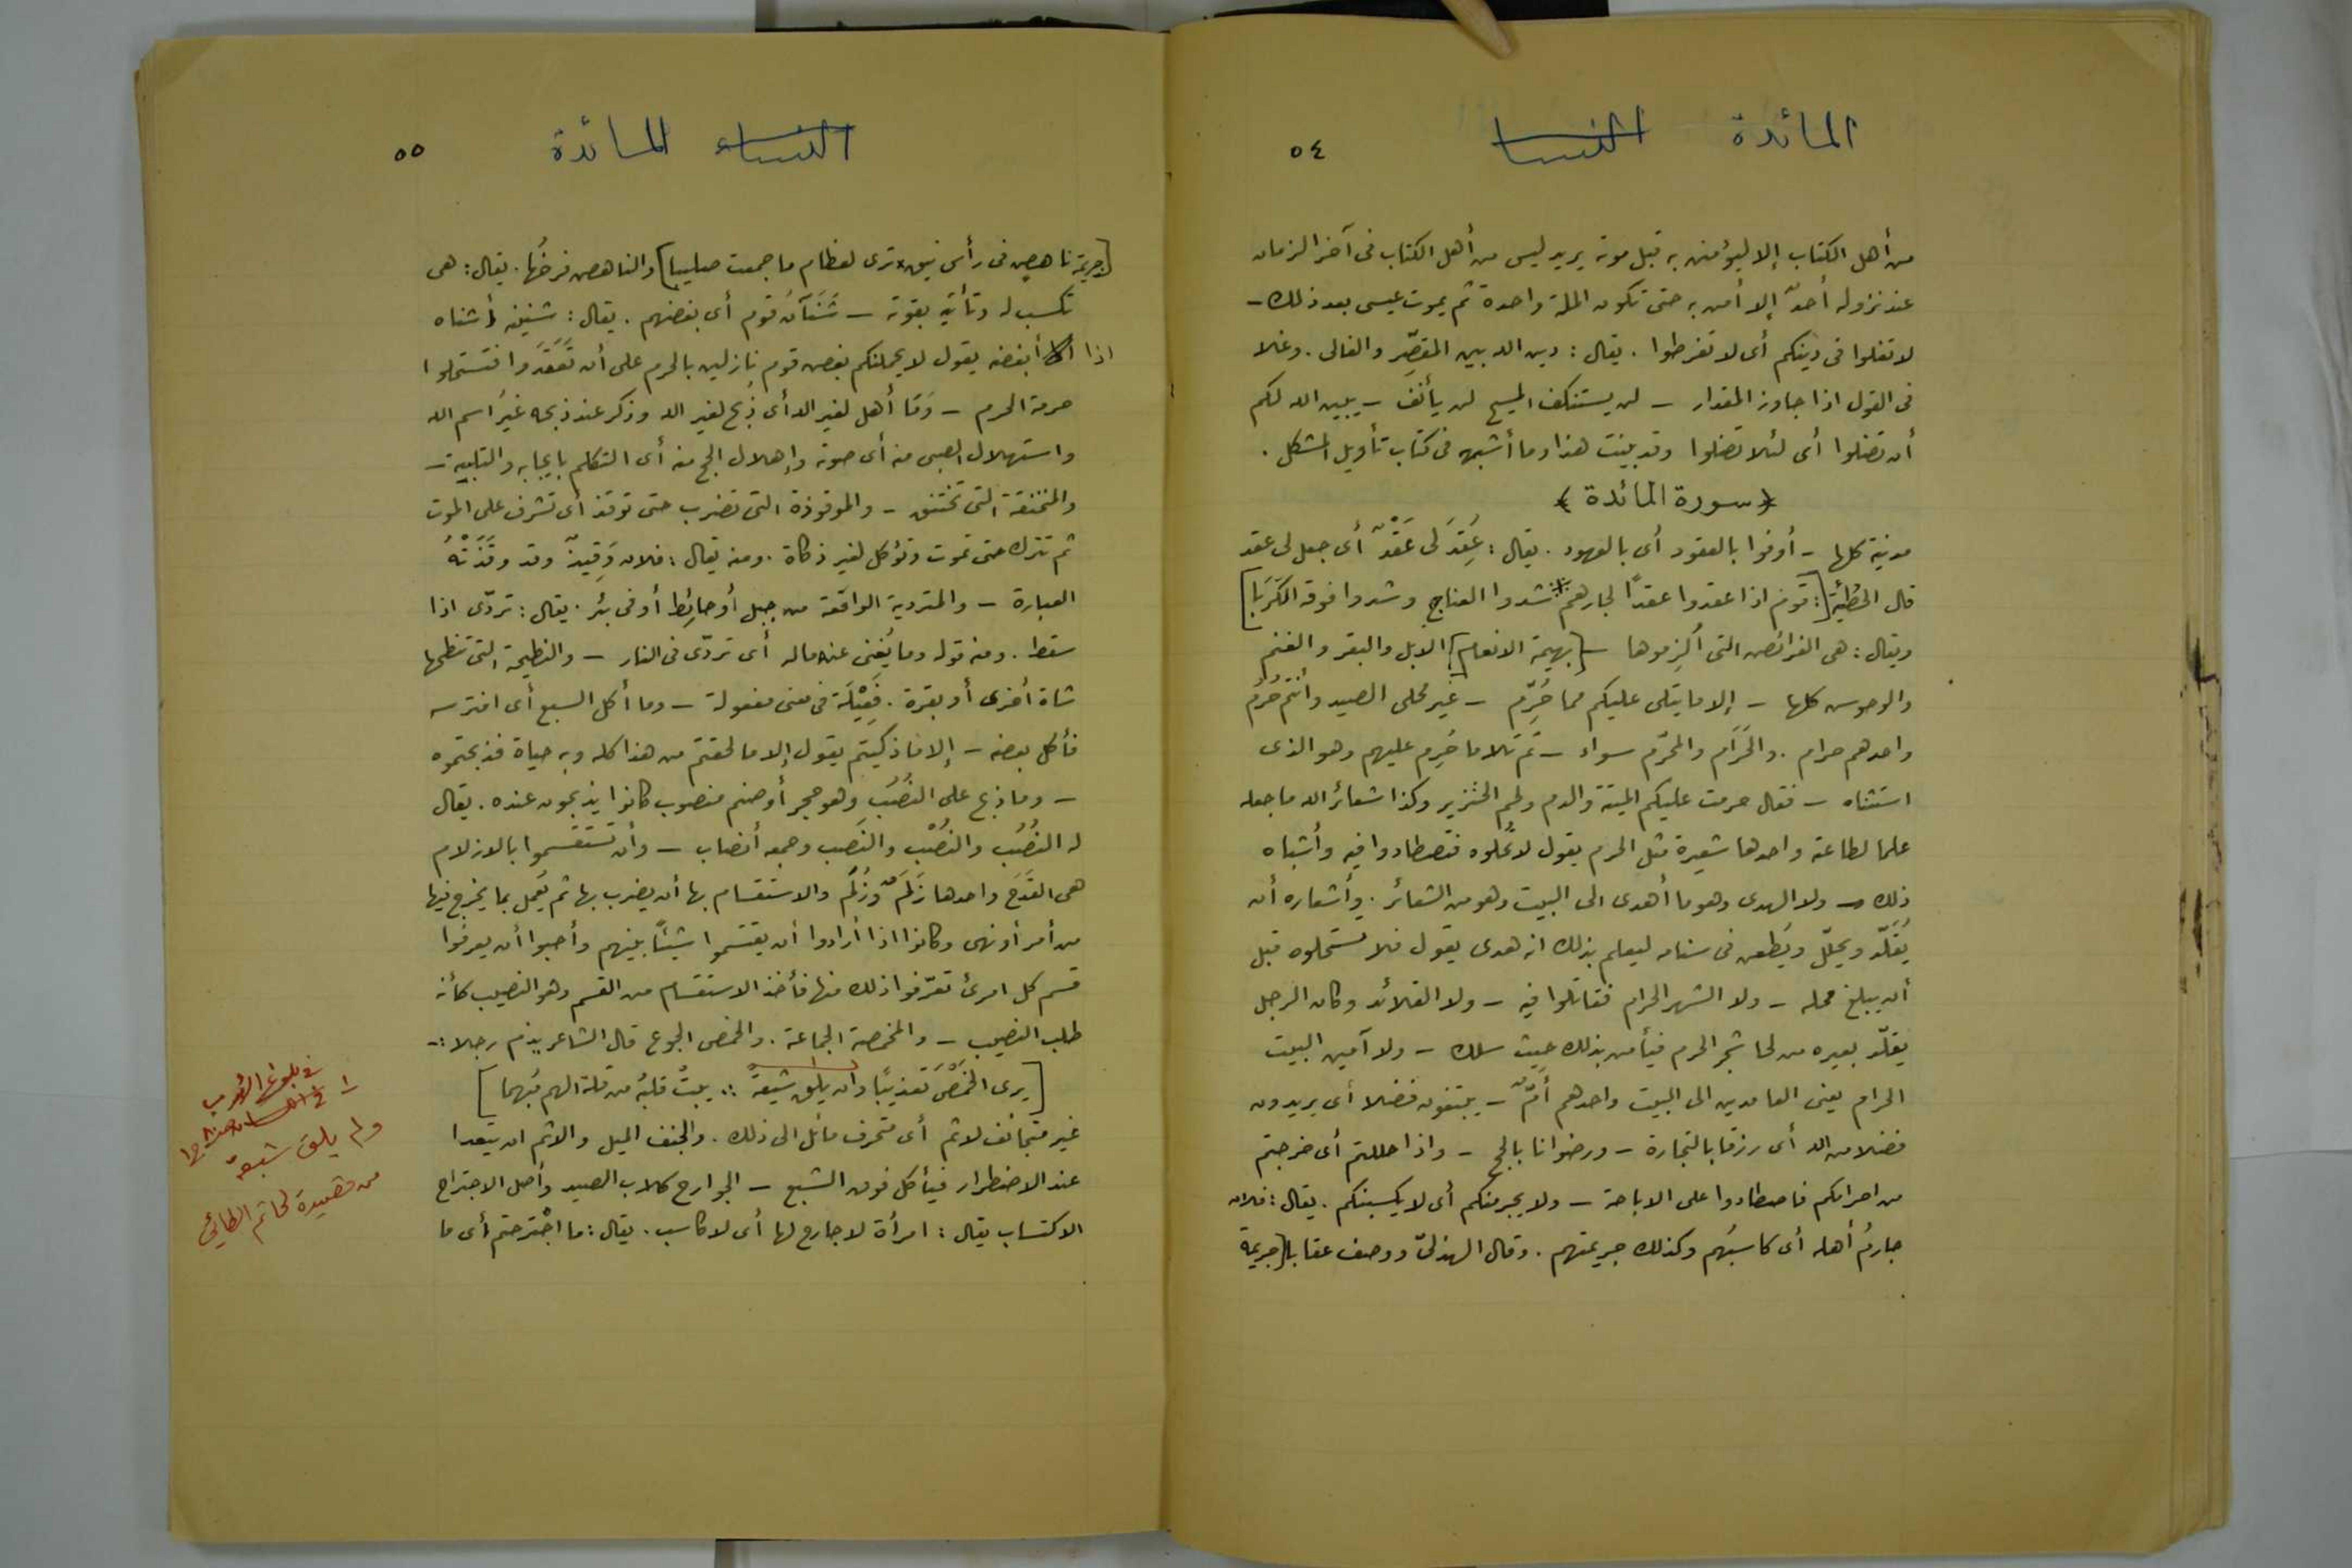 المائدة النسا ٥٤
من أهل الكتاب إلا ليؤمنن به قبل موته يريد ليس من أهل الكتاب فى آخر الزمان
عند نزوله أحدٌ إلا أمن به حتى تكون الملة واحدة ثم يموت عيسى بعد ذلك –
لا تغلوا فى دينكم أى لا تفرطوا . يقال : دين الله بين المقصّر والغالى . وغلا
فى القول اذا جاوز المقدار – لن يستنكف المسيح لن يأنف – يبين الله لكم
أن تضلوا أى لئلا تضلوا وقد بينت هذا وما أشبهه فى كتاب تأويل المشكل .
﴿ سورة المائدة ﴾
مدنية كلها – أوفوا بالعقود أى بالعهود . يقال : عُقِدَ لى عَقْدٌ أى جعل لى عقد
قال الحطيئة [: قوم اذا عقدوا عقدًا لجارهم ∴ شدوا العناج وشدوا فوقه الكَرَبَا]
ويقال : هى الفرائض التى ألزموها – [بهيمة الانعام] الابل والبقر والغنم
والوحوش كلها – إلا ما يتلى عليكم مما حُرّم – غير محلى الصيد وأنتم حُرُم
واحدهم حرام . والحَرَام والمحرّم سواء – ثم تلا ما حُرِم عليهم وهو الذى
استثناه – فقال حرمت عليكم الميتة والدم ولحم الخنزير وكذا شعائر الله ما جعله
علما لطاعته واحدها شعيرة مثل الحرم يقول لا تحلوه فتصطادوا فيه وأشباه
ذلك – ولا الهدى وهو ما أهدى الى البيت وهو من الشعائر . وأشعاره أن
يُقَلّد ويجلّل ويُطعن فى سنامه ليعلم بذلك انه هدى يقول فلا تستحلوه قبل
أن يبلغ محله – ولا الشهر الحرام فتقاتلوا فيه – ولا القلائد وكان الرجل
يقلّد بعيره من لحا شجر الحرم فيأمن بذلك حيث سلك – ولا آمين البيت
الحرام يعنى العامدين الى البيت واحدهم أمٌّ – يبتغون فضلا أى يريدون
فضلا من الله أى رزقا بالتجارة – ورضوانا بالحج – واذا حللتم أى خرجتم
من احرامكم فاصطادوا على الاباحة – ولا يجرمنكم أى لا يكسبنكم . يقال : فلان
جارمُ أهله أى كاسبُهم وكذلك جريمتهم . وقال الهذلىّ ووصف عقابا [جريمة
النساء المائدة ٥٥
[جريمة ناهض فى رأس نيق × ترى لعظام ما جمعت صليبا] والناهض فرخُها . يقال : هى
تكسب له وتأتيه بقوته – شَنَآن قوم أى بغضهم . يقال : شنيته أشناه
اذا أبغضه يقول لا يحملنكم بغض قوم نازلين بالحرم على أن تعتدوا فتستحلوا
حرمة الحرم – وَمَا أهل لغير الله أى ذُبح لغير الله وذكر عند ذبحه غيرُ اسم الله
واستهلال الصبى منه أى صوته وإهلال الحج منه أى التكلم بايجابه والتلبية –
والمنخنقة التى تختنق – والموقوذة التى تضرب حتى توقذ أى تشرف على الموت
ثم تترك حتى تموت وتؤكل لغير ذكاة . ومنه يقال : فلان وَقِيذٌ وقد وقَذَتْهُ
العبارة – والمتردية الواقعة من جبل أو حائِط أو فى بئر . يقال : تردّى اذا
سقط . ومنه قوله وما يُغنى عنه ماله أى تردّى فى النار – والنطيحة التى تنطحها
شاة أخرى أو بقرة . فَعِيْلَة فى معنى مفعولة – وما أكل السبع أى افترسه
فأكل بعضه – إلا ما ذكيتم يقول إلا ما لحقتم من هذا كله وبه حياة فذبحتموه
– وما ذبح على النُصُب وهو حجر أو صنم منصوب كانوا يذبحون عنده . يقال
له النُصُب والنُصْب والنَصب وجمعه أنصاب – وأن تستقسموا بالازلام
هى القدَح واحدها زَلَم وزُلَم والاستقسام بها أن يضرب بها ثم يُعمل بما يخرج فيها
من أمر أو نهى وكانوا اذا أرادوا أن يقتسموا شيئًا بينهم وأحبوا أن يعرفوا
قسم كل امرئ تعرّفوا ذلك منها فأخذ الاستقسام من القسم وهو النصيب كأنه
طلب النصيب – والمخمصة المجاعة . والخمص الجوع قال الشاعر يذم رجلا :–
[يرى الخَمْصَ تعذيبًا وان يلق شبعةً ∴ يبتْ قلبُه من قلة الهم مُبهما]
١
غير متجانف لاثم أى منحرف مائل الى ذلك . والجنف الميل والاثم ان يتعدا
عند الاضطرار فيأكل فوق الشبع – الجوارح كلاب الصيد وأصل الاجتراح
الاكتساب يقال : امرأة لا جارح لها أى لا كاسب . يقال : ما اجْترحتم أى ما
فى بلوغ الأرب
١ –
ولم يلق شبعة
من قصيدة لحاتم الطائي